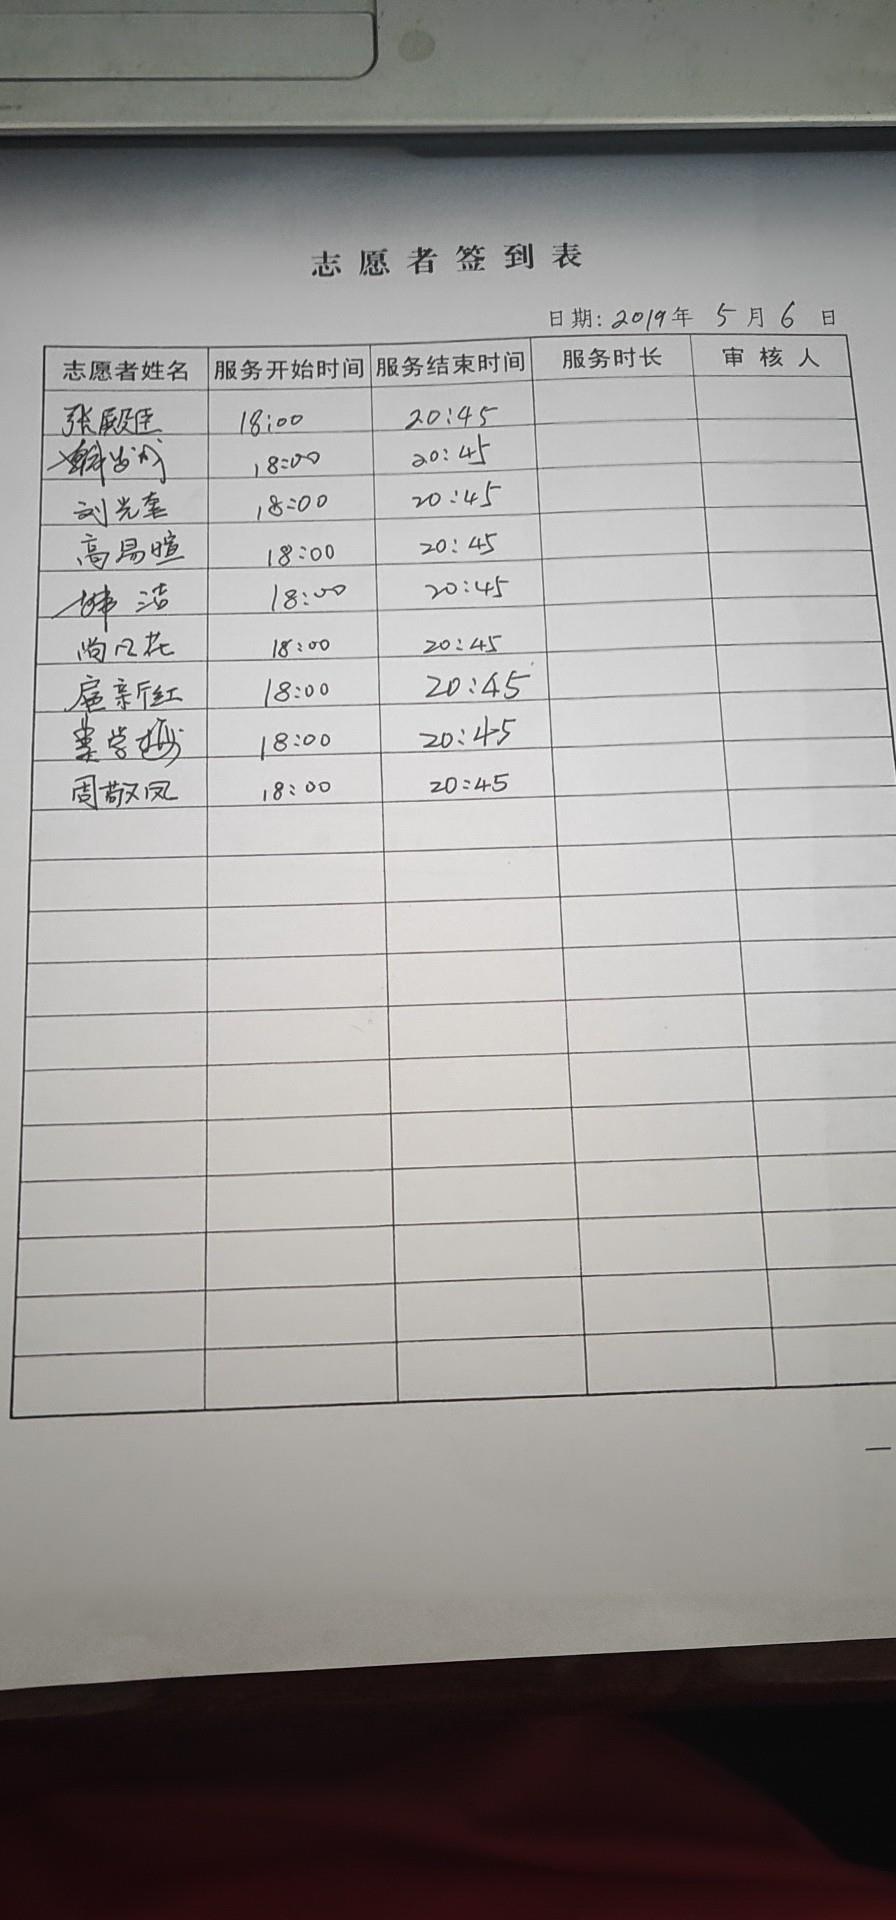 志愿者签到表
日期: 2019年 5月 6日
志愿者姓名 服务开始时间 服务结束时间 服务时长 审核人
张殿臣 18:00 20:45
18:00 20:45
刘光奎 18:00 20:45
高易暄 18:00 20:45
洁 18:00 20:45
尚凡花 18:00 20:45
扈新红 18:00 20:45
18:00 20:45
周敬凤 18:00 20:45